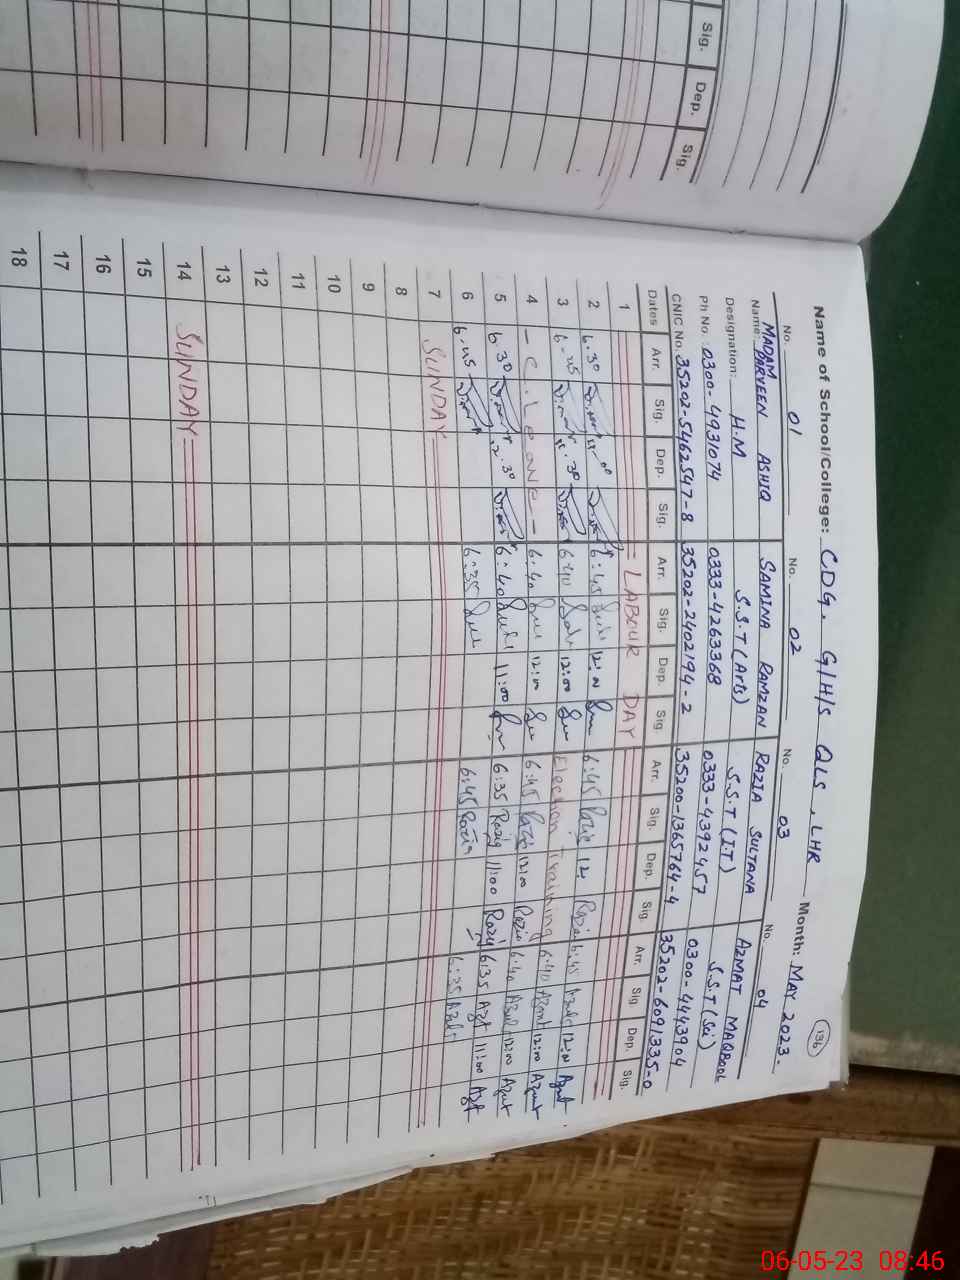 Sig. Dep. Sig.
136
Name of School/College: CDG. G/H/S QLS, LHR Month: MAY 2023.
No. 01 No. 02 No. 03 No. 04
Name: MADAM PARVEEN ASHIQ SAMINA RAMZAN RAZIA SULTANA AZMAT MAQBOOL
Designation: H.M S.S.T (Arts) S.S.T (I.T) S.S.T (Sci)
Ph No: 0300-4931074 0333-4263368 0333-4392457 0300-4443904
CNIC No. 35202-5462547-8 35202-2402194-2 35200-1365764-4 35202-6091335-0
Dates Arr. Sig. Dep. Sig. Arr. Sig. Dep. Sig. Arr. Sig. Dep. Sig. Arr. Sig. Dep. Sig.
1 = LABOUR DAY
2 6:30 6:45 12:00 6:45 Razia 12: Razia 6:45 12:00
3 6:25 11:30 6:40 12:00 Election Training 6:40 Azmat 12:00 Azmat
4 - C. Leave - 6:40 12:00 6:45 Razia 12:00 Razia 6:40 12:00 Azmat
5 6:30 12:30 6:40 11:00 6:35 Razia 11:00 Razia 6:35 11:00
6 6:25 6:35 6:45 Razia 6:25
7 SUNDAY
8
9
10
11
12
13
14 SUNDAY
15
16
17
18
06-05-23 08:46